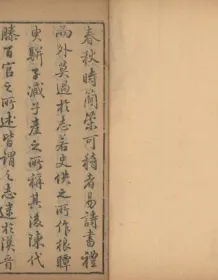 春秋時簡策可稽者易詩書禮
而外莫過於志若史佚之所作狼瞫
臾駢子臧子產之所稱其後陳代
滕百官之所述皆謂之志逮於漢晉